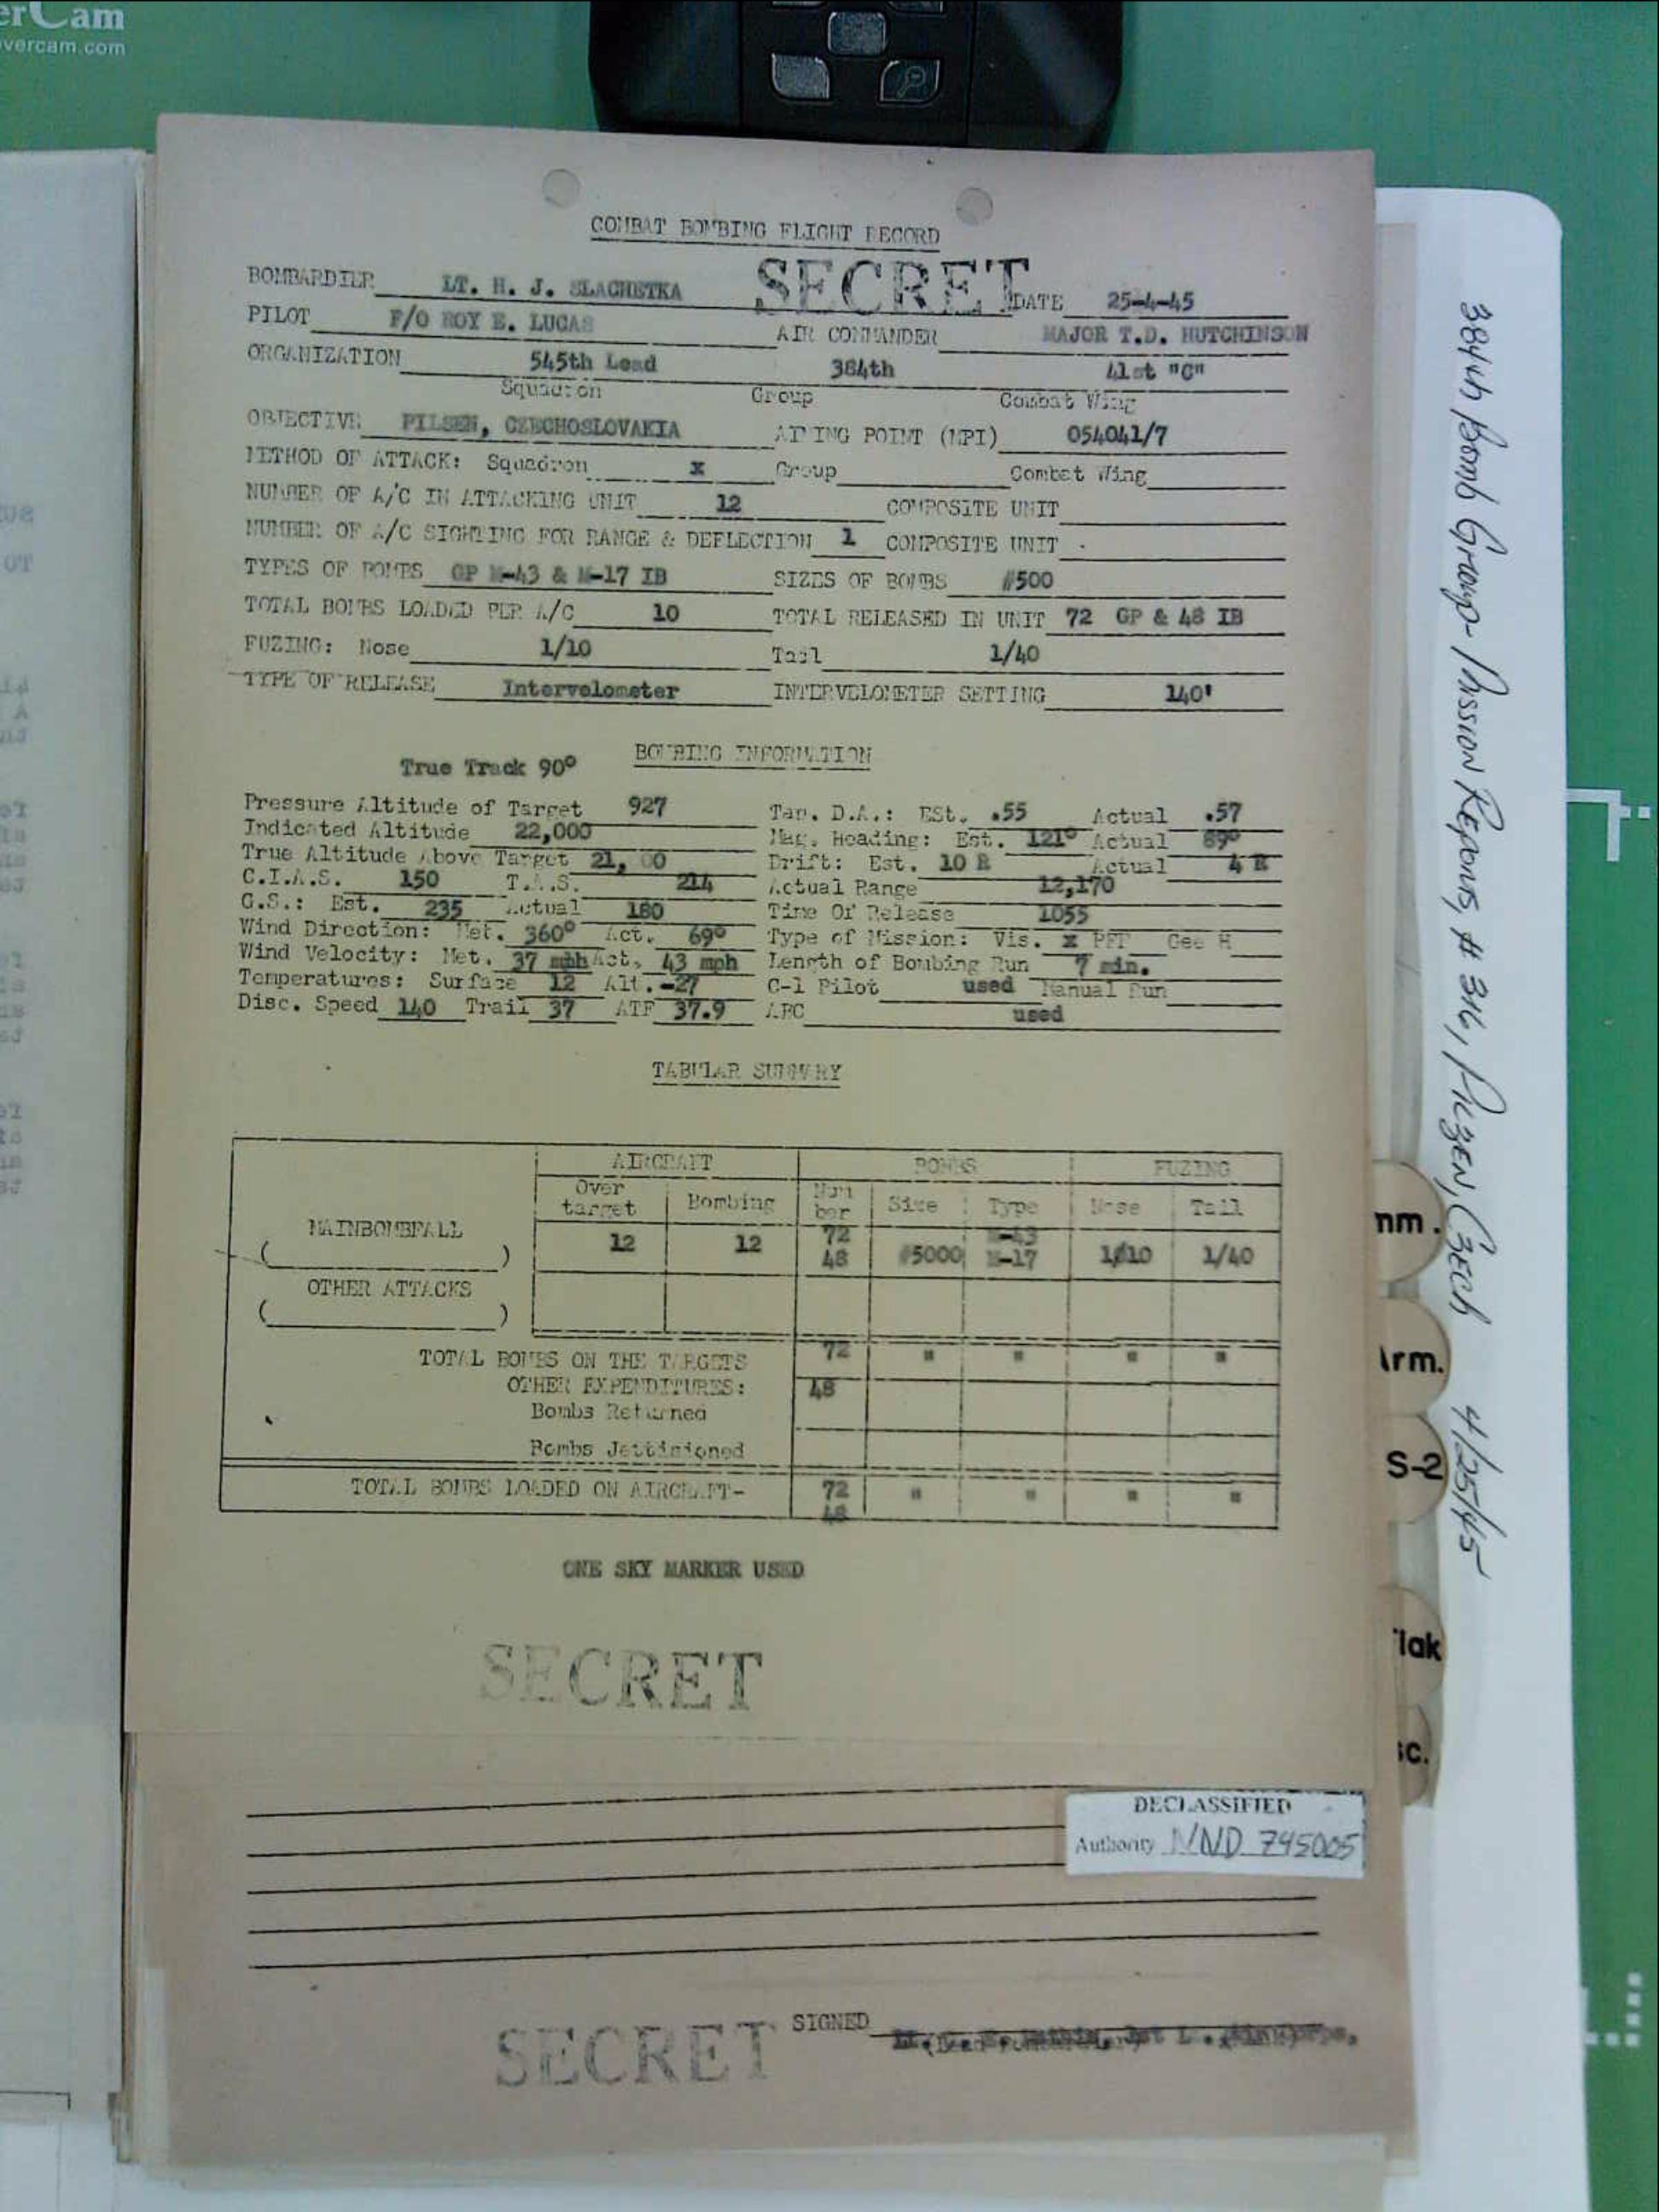 erCam
vercam.com
COMBAT BOMBING FLIGHT RECORD
SECRET
BOMBARDIER LT. H. J. SLACHETKA DATE 25-4-45
PILOT F/O ROY E. LUCAS AIR COMMANDER MAJOR T.D. HUTCHINSON
ORGANIZATION 545th Lead 384th 41st "C"
Squadron Group Combat Wing
OBJECTIVE PILSEN, CZECHOSLOVAKIA AIMING POINT (MPI) 054041/7
METHOD OF ATTACK: Squadron x Group Combat Wing
NUMBER OF A/C IN ATTACKING UNIT 12 COMPOSITE UNIT
NUMBER OF A/C SIGHTING FOR RANGE & DEFLECTION 1 COMPOSITE UNIT
TYPES OF BOMBS GP M-43 & M-17 IB SIZES OF BOMBS #500
TOTAL BOMBS LOADED PER A/C 10 TOTAL RELEASED IN UNIT 72 GP & 48 IB
FUZING: Nose 1/10 Tail 1/40
TYPE OF RELEASE Intervelometer INTERVELOMETER SETTING 140'
BOMBING INFORMATION
True Track 90°
Pressure Altitude of Target 927 Tan. D.A.: Est. .55 Actual .57
Indicated Altitude 22,000 Mag. Heading: Est. 121° Actual 89°
True Altitude Above Target 21, 00 Drift: Est. 10 R Actual 4 R
C.I.A.S. 150 T.A.S. 214 Actual Range 12,170
G.S.: Est. 235 Actual 180 Time Of Release 1055
Wind Direction: Met. 360° Act. 69° Type of Mission: Vis. x PFF Gee H
Wind Velocity: Met. 37 mph Act. 43 mph Length of Bombing Run 7 min.
Temperatures: Surface 12 Alt. -27 C-1 Pilot used Manual Run
Disc. Speed 140 Trail 37 ATF 37.9 ABC used
TABULAR SUMMARY
AIRCRAFT BOMBS FUZING
Over target Bombing Number Size Type Nose Tail
MAINBOMBFALL
( ) 12 12 72 48 #5000 M-43 M-17 1/10 1/40
OTHER ATTACKS
( )
TOTAL BOMBS ON THE TARGETS 72 " " " "
OTHER EXPENDITURES: 48
Bombs Returned
Bombs Jettisioned
TOTAL BOMBS LOADED ON AIRCRAFT- 72 48 " " " "
ONE SKY MARKER USED
SECRET
DECLASSIFIED
Authority NND 745005
SIGNED
SECRET
384th Bomb Group - Mission Reports, # 316, Pilzen, Czech 4/25/45
mm.
Arm.
S-2
lak
sc.